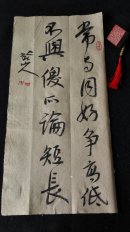 常与同好争高低
不与傻瓜论短長